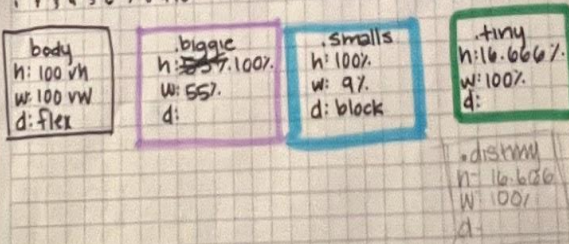 body
h: 100 vh
w: 100 vw
d: flex
.biggie
h: 100%.
w: 55%.
d:
.smalls
h: 100%.
w: 9%.
d: block
.tiny
h: 16.666%.
w: 100%.
d:
h: 16.666
w: 100%
d: